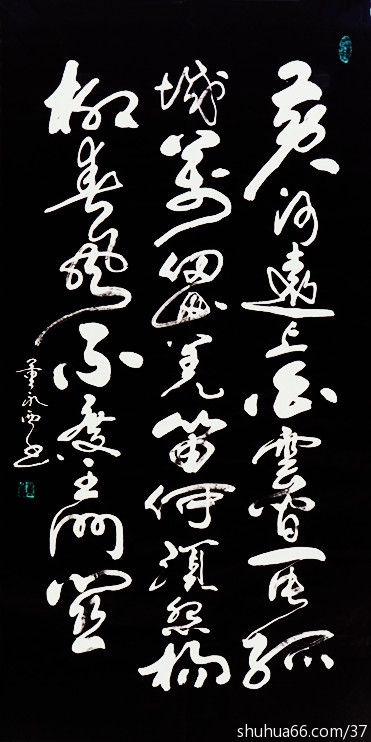 黄河遠上白雲間一片孤
城萬仞山羌笛何須怨楊
柳春風不度玉門關
董永西书
shuhua66.com/37